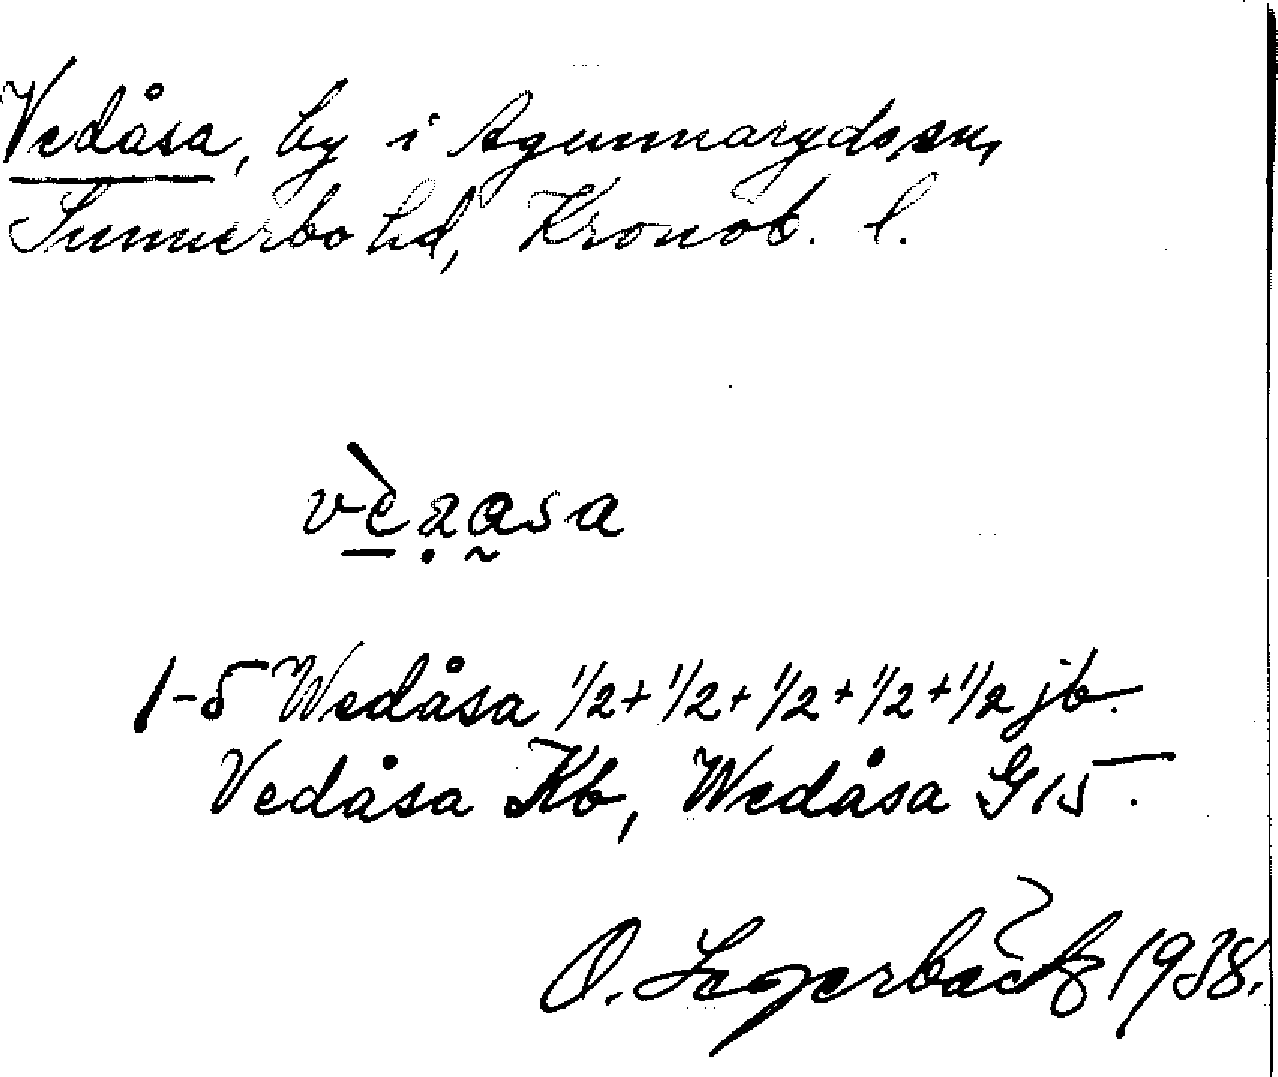 Vedåsa, by i Agunnaryds sn,
Sunnerbo hd, Kronob. l.
vèạa̰sa
1-5 Wedåsa 1/2+1/2+1/2+1/2+1/2 jb.
Vedåsa Kb, Wedåsa G 15.
O. 1938.